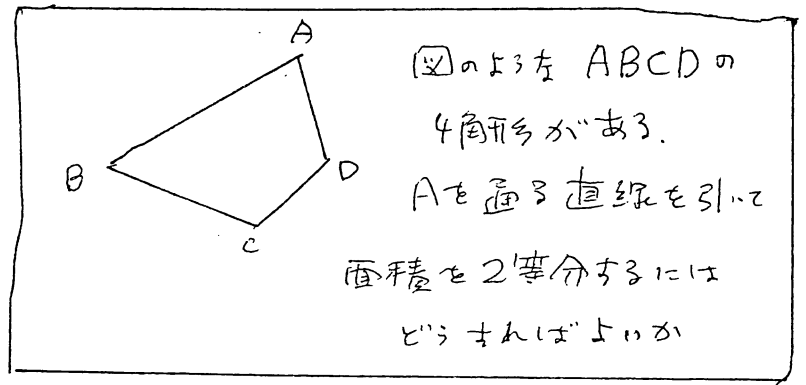 A
B
C
D
図のような ABCDの
4角形がある.
Aを通る直線を引いて
面積を2等分するには
どうすればよいか